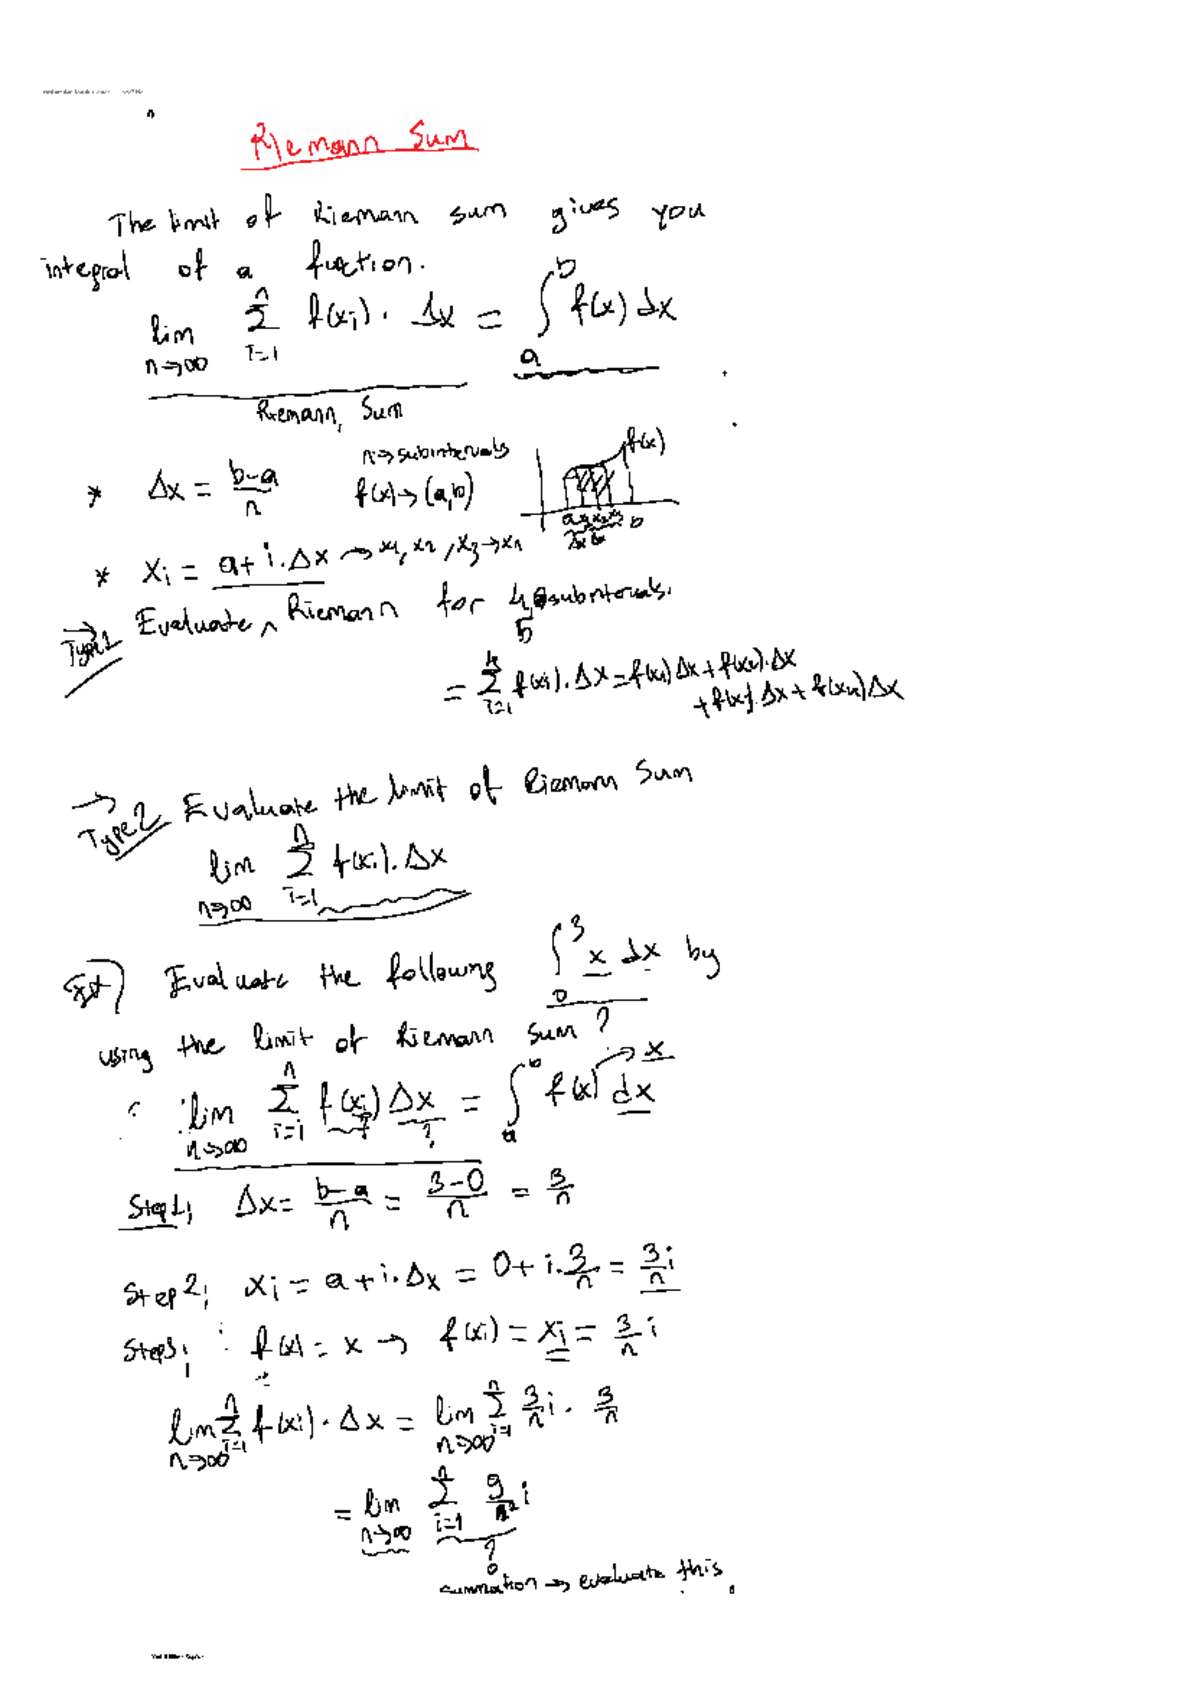 Riemann Sum
The limit of Riemann sum gives you
integral of a function.
lim n→∞ Σ i=1 n f(xi) · Δx = ∫ a b f(x) dx
Riemann, Sum
* Δx = b-a / n
n → subintervals
f(x) → (a,b)
f(x)
b
* xi = a + i.Δx → x1, x2, x3 → xn
Type1 Evaluate, Riemann for 4 subintervals.
5
= Σ i=1 4 f(xi).Δx = f(x1)Δx + f(x2).Δx
+ f(x3).Δx + f(x4)Δx
Type2 Evaluate the limit of Riemann Sum
lim n→∞ Σ i=1 n f(xi).Δx
Evaluate the following ∫ 0 3 x dx by
using the limit of Riemann sum?
lim n→∞ Σ i=1 n f(xi) Δx = ∫ a b f(x) dx → x
? ?
Step1; Δx = b-a / n = 3-0 / n = 3/n
Step2; xi = a + i.Δx = 0 + i.3/n = 3/n i
Step3; f(x) = x → f(xi) = xi = 3/n i
lim n→∞ Σ i=1 n f(xi) · Δx = lim n→∞ Σ i=1 n 3/n i · 3/n
= lim n→∞ Σ i=1 n 9/n² i
?
summation → evaluate this